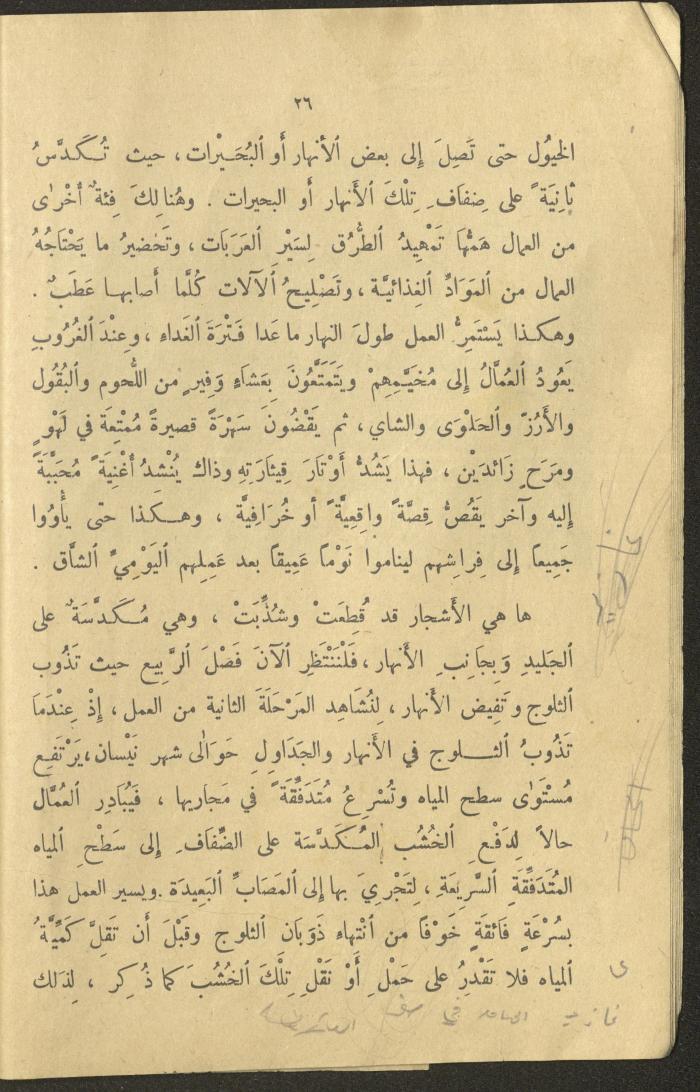 ٢٦
الخيُول حتى تَصِلَ إِلى بعض ٱلأنهار أَو ٱلبُحَيْرات ، حيث تُكَدَّسُ
ثَانِيَةً على ضِفَافِ تِلْكَ ٱلأَنهار أَو البحيرات . وهُنَالِكَ فِئَةٌ أُخْرٰى
من العمال هَمُّهَا تَمْهِيدُ ٱلطُّرُق لِسَيْرِ ٱلعَرَبَات ، وتَحْضِيرُ ما يَحْتَاجُهُ
العمال من ٱلمَوَادِّ ٱلغِذائيَّة ، وتَصْلِيحُ ٱلآلات كُلَّما أَصابها عَطَبٌ .
وهكذا يَسْتَمِرُّ العمل طولَ النهار ما عَدا فَتْرَةَ ٱلغَداء ، وعِنْدَ ٱلغُرُوبِ
يَعُودُ ٱلعُمَّالُ إِلى مُخَيَّمِهِمْ ويَتَمَتَّعُونَ بِعَشاءٍ وَفِيرٍ من اللُّحوم وٱلبُقُول
والأَرُزّ وٱلحَلْوَى والشاي ، ثم يَقْضُونَ سَهْرَةً قصيرةً مُمْتِعَة في لَهْوٍ
ومَرَحٍ زَائدَيْن ، فهذا يَشُدُّ أَوْتَارَ قِيثَارَتِهِ وذاك يُنْشدُ أُغْنِيَةً مُحَبَّبَةً
إليه وآخر يَقُصُّ قِصَّةً واقِعِيَّةً أو خُرَافِيَّة ، وهكذا حتى يأْوُوا
جَمِيعاً إِلى فِراشِهم ليناموا نَوْماً عَمِيقاً بعد عَمِلِهم ٱليَوْمِيِّ ٱلشَّاق .
ها هي الأَشجار قد قُطِعَتْ وشُذِّبَتْ ، وهي مُكَدَّسَةٌ على
ٱلجَليدِ وَبِجَانِبِ الأَنهار ، فَلْنَنْتَظِرِ ٱلآنَ فَصْلَ ٱلرَّبيع حيث تَذُوب
ٱلثلوج وتَفِيض الأَنهار ، لِنُشَاهِد المَرْحَلَةَ الثانية من العمل ، إِذْ عِنْدَمَا
تَذُوبُ ٱلثلوج في الأَنهار والجَدَاوِلِ حَوَالٰى شهر نَيْسان، يَرْتَفِع
مُسْتَوٰى سطح المياه وتُسْرِعُ مُتَدَفِّقَةً في مَجاريها ، فَيُبَادِر ٱلعُمَّال
حالاً لِدَفْعِ ٱلخُشُبِ المُكَدَّسَة على الضِّفَافِ إِلى سَطْحِ المياه
المُتَدَفِّقَةِ ٱلسَّرِيعَةِ ، لِتَجْرِيَ بها إِلى ٱلمَصَابِّ ٱلبَعِيدَة . ويسير العمل هذا
بسُرْعَةٍ فَائقَةٍ خَوْفاً من ٱنْتهاءِ ذَوَبَان ٱلثلوج وقَبْلَ أَن تَقلَّ كَمِّيَّةُ
ٱلمياه فلا تَقْدِرُ على حَمْلِ أَوْ نَقْلِ تِلْكَ ٱلخُشُبَ كما ذُكِر ، لِذٰلك